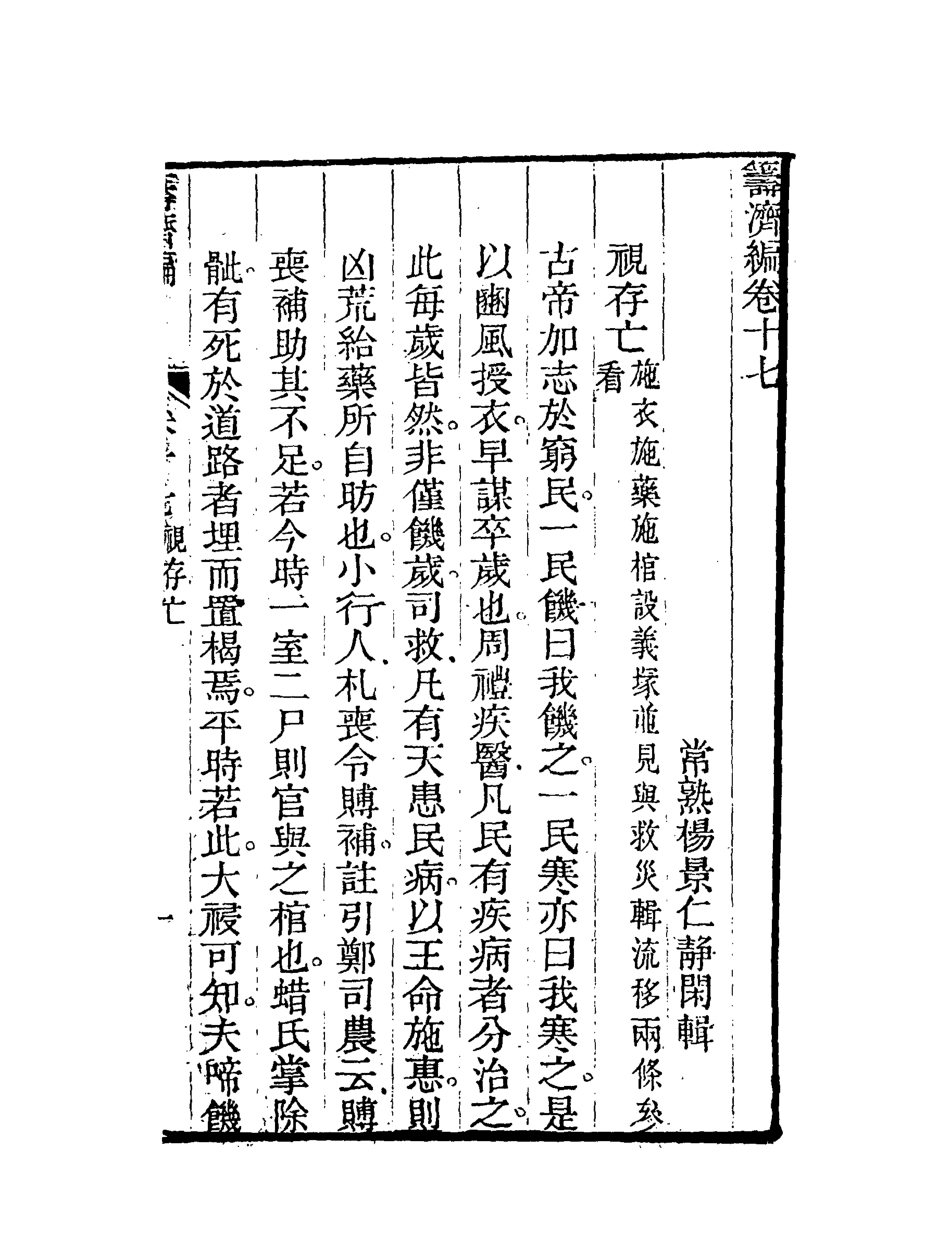 籌濟編卷十七
常熟楊景仁靜閑輯
視存亡施衣施藥施棺設義塚並見與救災輯流移兩條參
看
古帝加志於窮民。一民饑曰我饑之。一民寒亦曰我寒之。是
以豳風授衣。早謀卒歲也。周禮疾醫凡民有疾病者分治之。
此每歲皆然。非僅饑歲。司救凡有天患民病。以王命施惠。則
凶荒給藥所自昉也。小行人札喪令賻補。註引鄭司農云賻
喪補助其不足。若今時一室二尸則官與之棺也。蜡氏掌除
骴。有死於道路者埋而置楬焉。平時若此。大祲可知。夫啼饑
籌濟編 卷十七視存亡 一